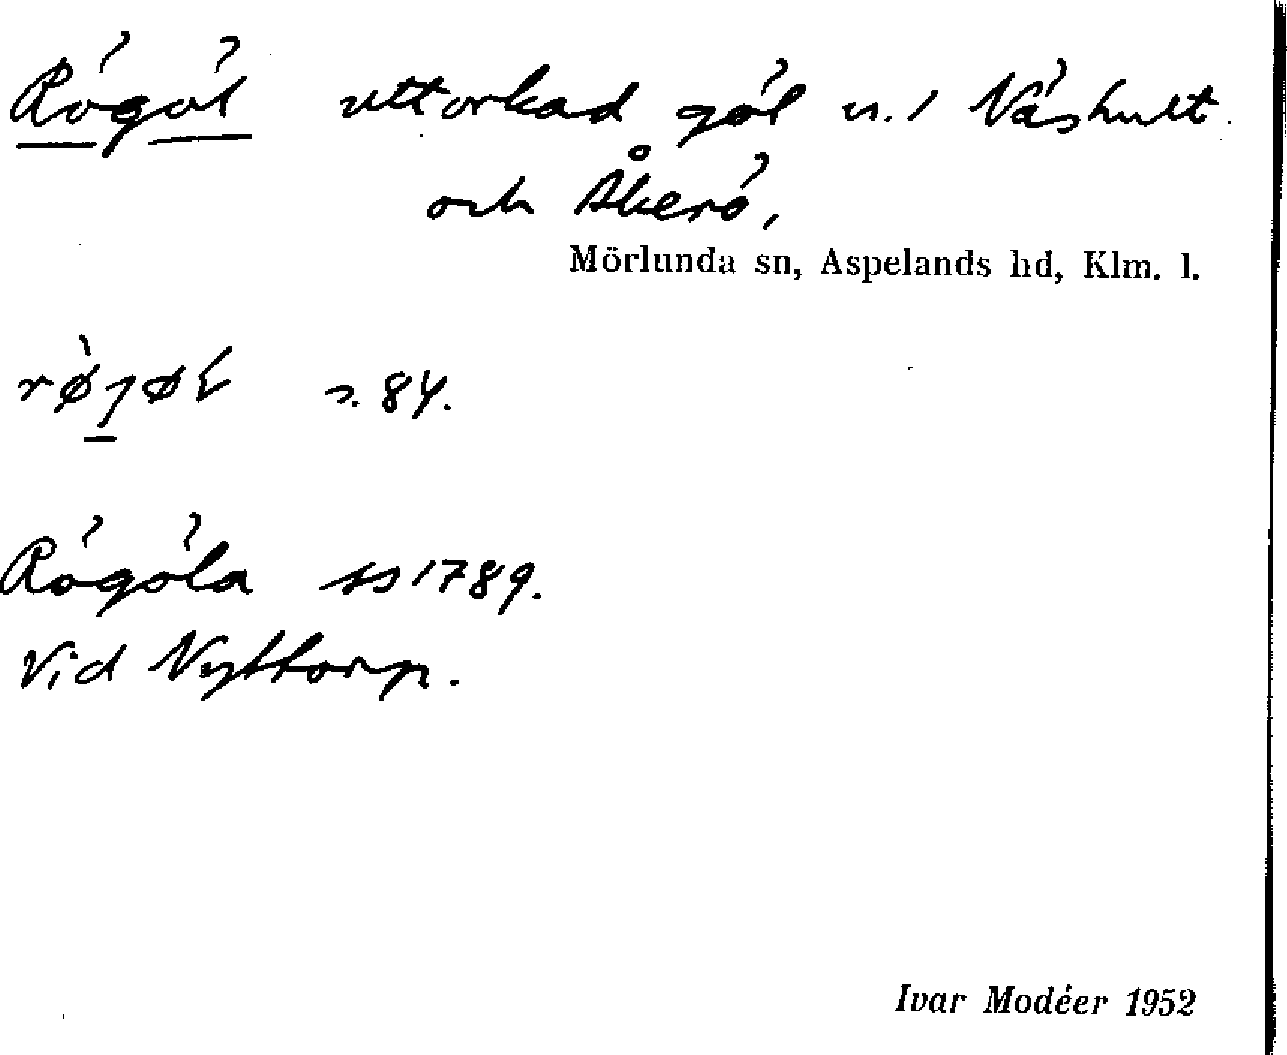 Rögöl uttorkad göl u. / Väshult
och Åkerö,
Mörlunda sn, Aspelands hd, Klm. l.
s. 84.
Rögöla ss 1789.
Vid Nyttorp.
Ivar Modéer 1952